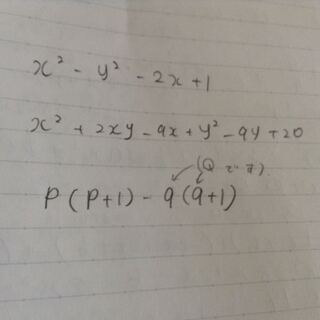 x² - y² - 2x + 1
x² + 2xy - 9x + y² - 9y + 20
(Qです)
P(P+1) - q(q+1)